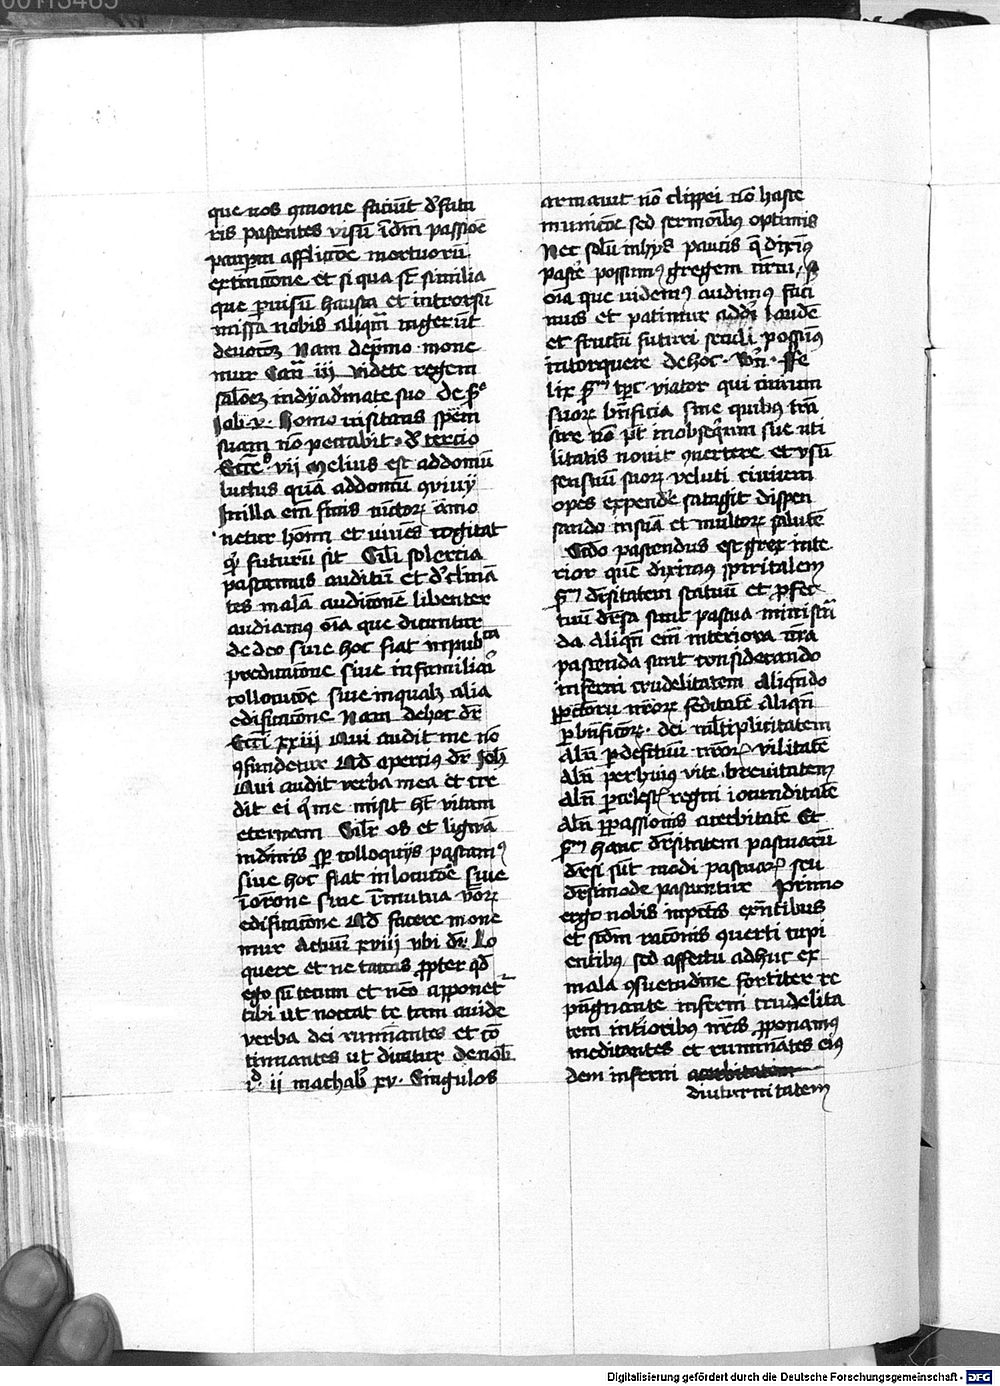 00113465
que nos 9mone faciūt d' futu
ris pascentes visū īdm̄ passiōe
paupm̄ afflictōe mortuorū
extinctione et si qua sū similia
que ꝑ visū hausta et introrsū
missa nobis aliqm̄ ingerūt
deuotōꝫ Nam de pmo mone
mur Cān iij videte regem
salōeꝫ in dyademate suo De s̄o
Iob v Homo visitans spēm
suam nō peccabit d' tercio
Eccēs vij Melius est ad domū
luctus quā ad domū 9viuij
In illa em̄ finis cūctoꝝ amo
netur hōīm et viuēs cogitat
qͥd futurū sit Sil'i solercia
pascamus auditū et d'climā
tes malā auditōnē libenter
audiamꝯ oīa que dicuntur
de deo siue hoc fiat in pub ca
predicatōne siue in familiari
collocutōe siue in qualꝫ alia
edificatōne Nam de hoc dr̄
Ecci xxiiij Qui audit me nō
9fundetur Ad apertiꝯ dr̄ Joh̄
Qui audit verba mea et cre
dit ei q' me misit ht̄ vitam
eternam Sil'r os et ligwā
in diuis sꝑ colloquijs pascamꝯ
siue hoc fiat in locutōe siue
ī orōne siue ī mutua v̄boꝝ
edificatōne Ad facere mone
mur Actuū xviij vbi dr̄ Lo
quere et ne taceas ꝓpter qd
ego sū tecum et nēo apponet̄
tibi ut noceat te tam auide
verba dei ruminantes et cō
tinuantes ut dicatur de nob'
id ij machab' xv Singulos
armauit nō clippei nō haste
municōe sed sermōibꝯ optimis
Nec solū in hijs paucis q̄ diximꝯ
pasce' possumꝯ gregem nr̄m, sꝫ
oīa que videmꝯ audimꝯ faci
mus et patimur ad dei laudē
et fructū futuri seculi possumꝯ
intorquere de hoc wn̄ Fe
lix sm̄ viator qui ciuium
suoꝝ bn̄ficia sine quibus trā
sire nō pōt in obseq̄um sue uti
litatis nouit 9uertere et vsū
sensuū suoꝝ veluti ciuium
opes expende' satagit dispen
sando in suā et multoꝝ salutē
Scdo pascendus est grex inte
rior quē diximus spiritalem
sm̄ diu'sitatem statuū et ꝓfec
tuū diu'sa sunt pascua ministrā
da Aliqn̄ em̄ interiora nr̄a
pascenda sunt considerando
inferni crudelitatem Aliqn̄do
pctorū nr̄oꝝ feditatē Aliqn̄
ꝑ bn̄ficoꝝ dei mul'tiplicitatem
Aln̄ ꝑ defectuū nr̄oꝝ vilitatē
Aln̄ per huiꝯ vite breuitatem
Aln̄ ꝑ celest' regni iocunditatē
Aln̄ ꝑ passionis acerbitatē Et
sm̄ hanc diu'sitatem pascuarū
diu'si sūt modi pascuaꝝ seu
diu'simode pascuntur Primo
ergo nobis in pctis exn̄tibus
et scdm racōnis 9uerti cupi
entibꝯ sed affectu adhuc ex
mala 9suetudine fortiter re
pugnante inferni crudelita
tem int'ioribꝯ nr̄is ꝓponamꝯ
meditantes et ruminātes eiꝯ
dem inferni acerbitatem
diuturnitatem
Digitalisierung gefördert durch die Deutsche Forschungsgemeinschaft - DFG